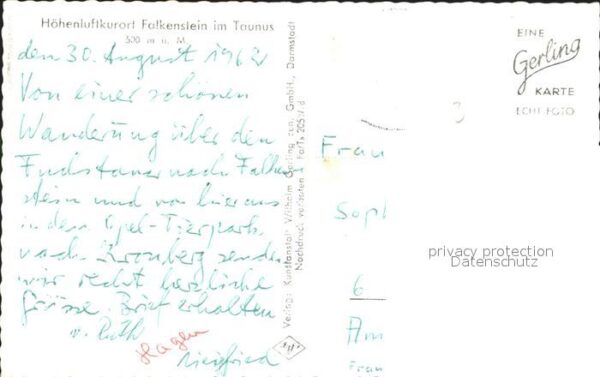 Höhenluftkurort Falkenstein im Taunus
500 m ü. M.
den 30. August 1962
Von einer schönen
Wanderung über den
Fuchstanz nach Falken-
stein und von hier aus
in den Opel-Tierpark
nach Kronberg senden
wir recht herzliche
Grüsse. Brief erhalten
v. Ruth
Hagen
Siegfried
Verlag: Kunstanstalt Wilhelm Gerling sen. GmbH., Darmstadt
Nachdruck verboten
EINE
Gerling
KARTE
ECHT FOTO
Frau
Soph
6
Am
Frau
privacy protection
Datenschutz